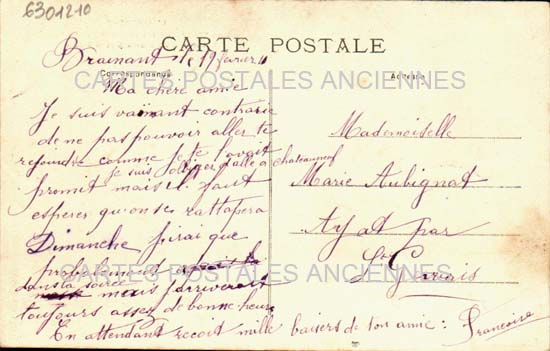 6301210
CARTE POSTALE
Correspondance
Adresse
Bramant le 19 février
Ma chère amie
Je suis vaiment contrarie
de ne pas pouvoir aller te
rejoindre comme je te l'avait
je suis obliger d'alle a chateauneuf
promit mais il faut
esperer qu'on se rattapera
Dimanche j'irai que
probablement
dans la soirée
mais j'arriverait
toujours assez de bonne heure
En attendant recoit mille baisers de ton amie : Françoise
Mademoiselle
Marie Aubignat
Ayat par
St Gervais
CARTES POSTALES ANCIENNES
CARTES POSTALES ANCIENNES